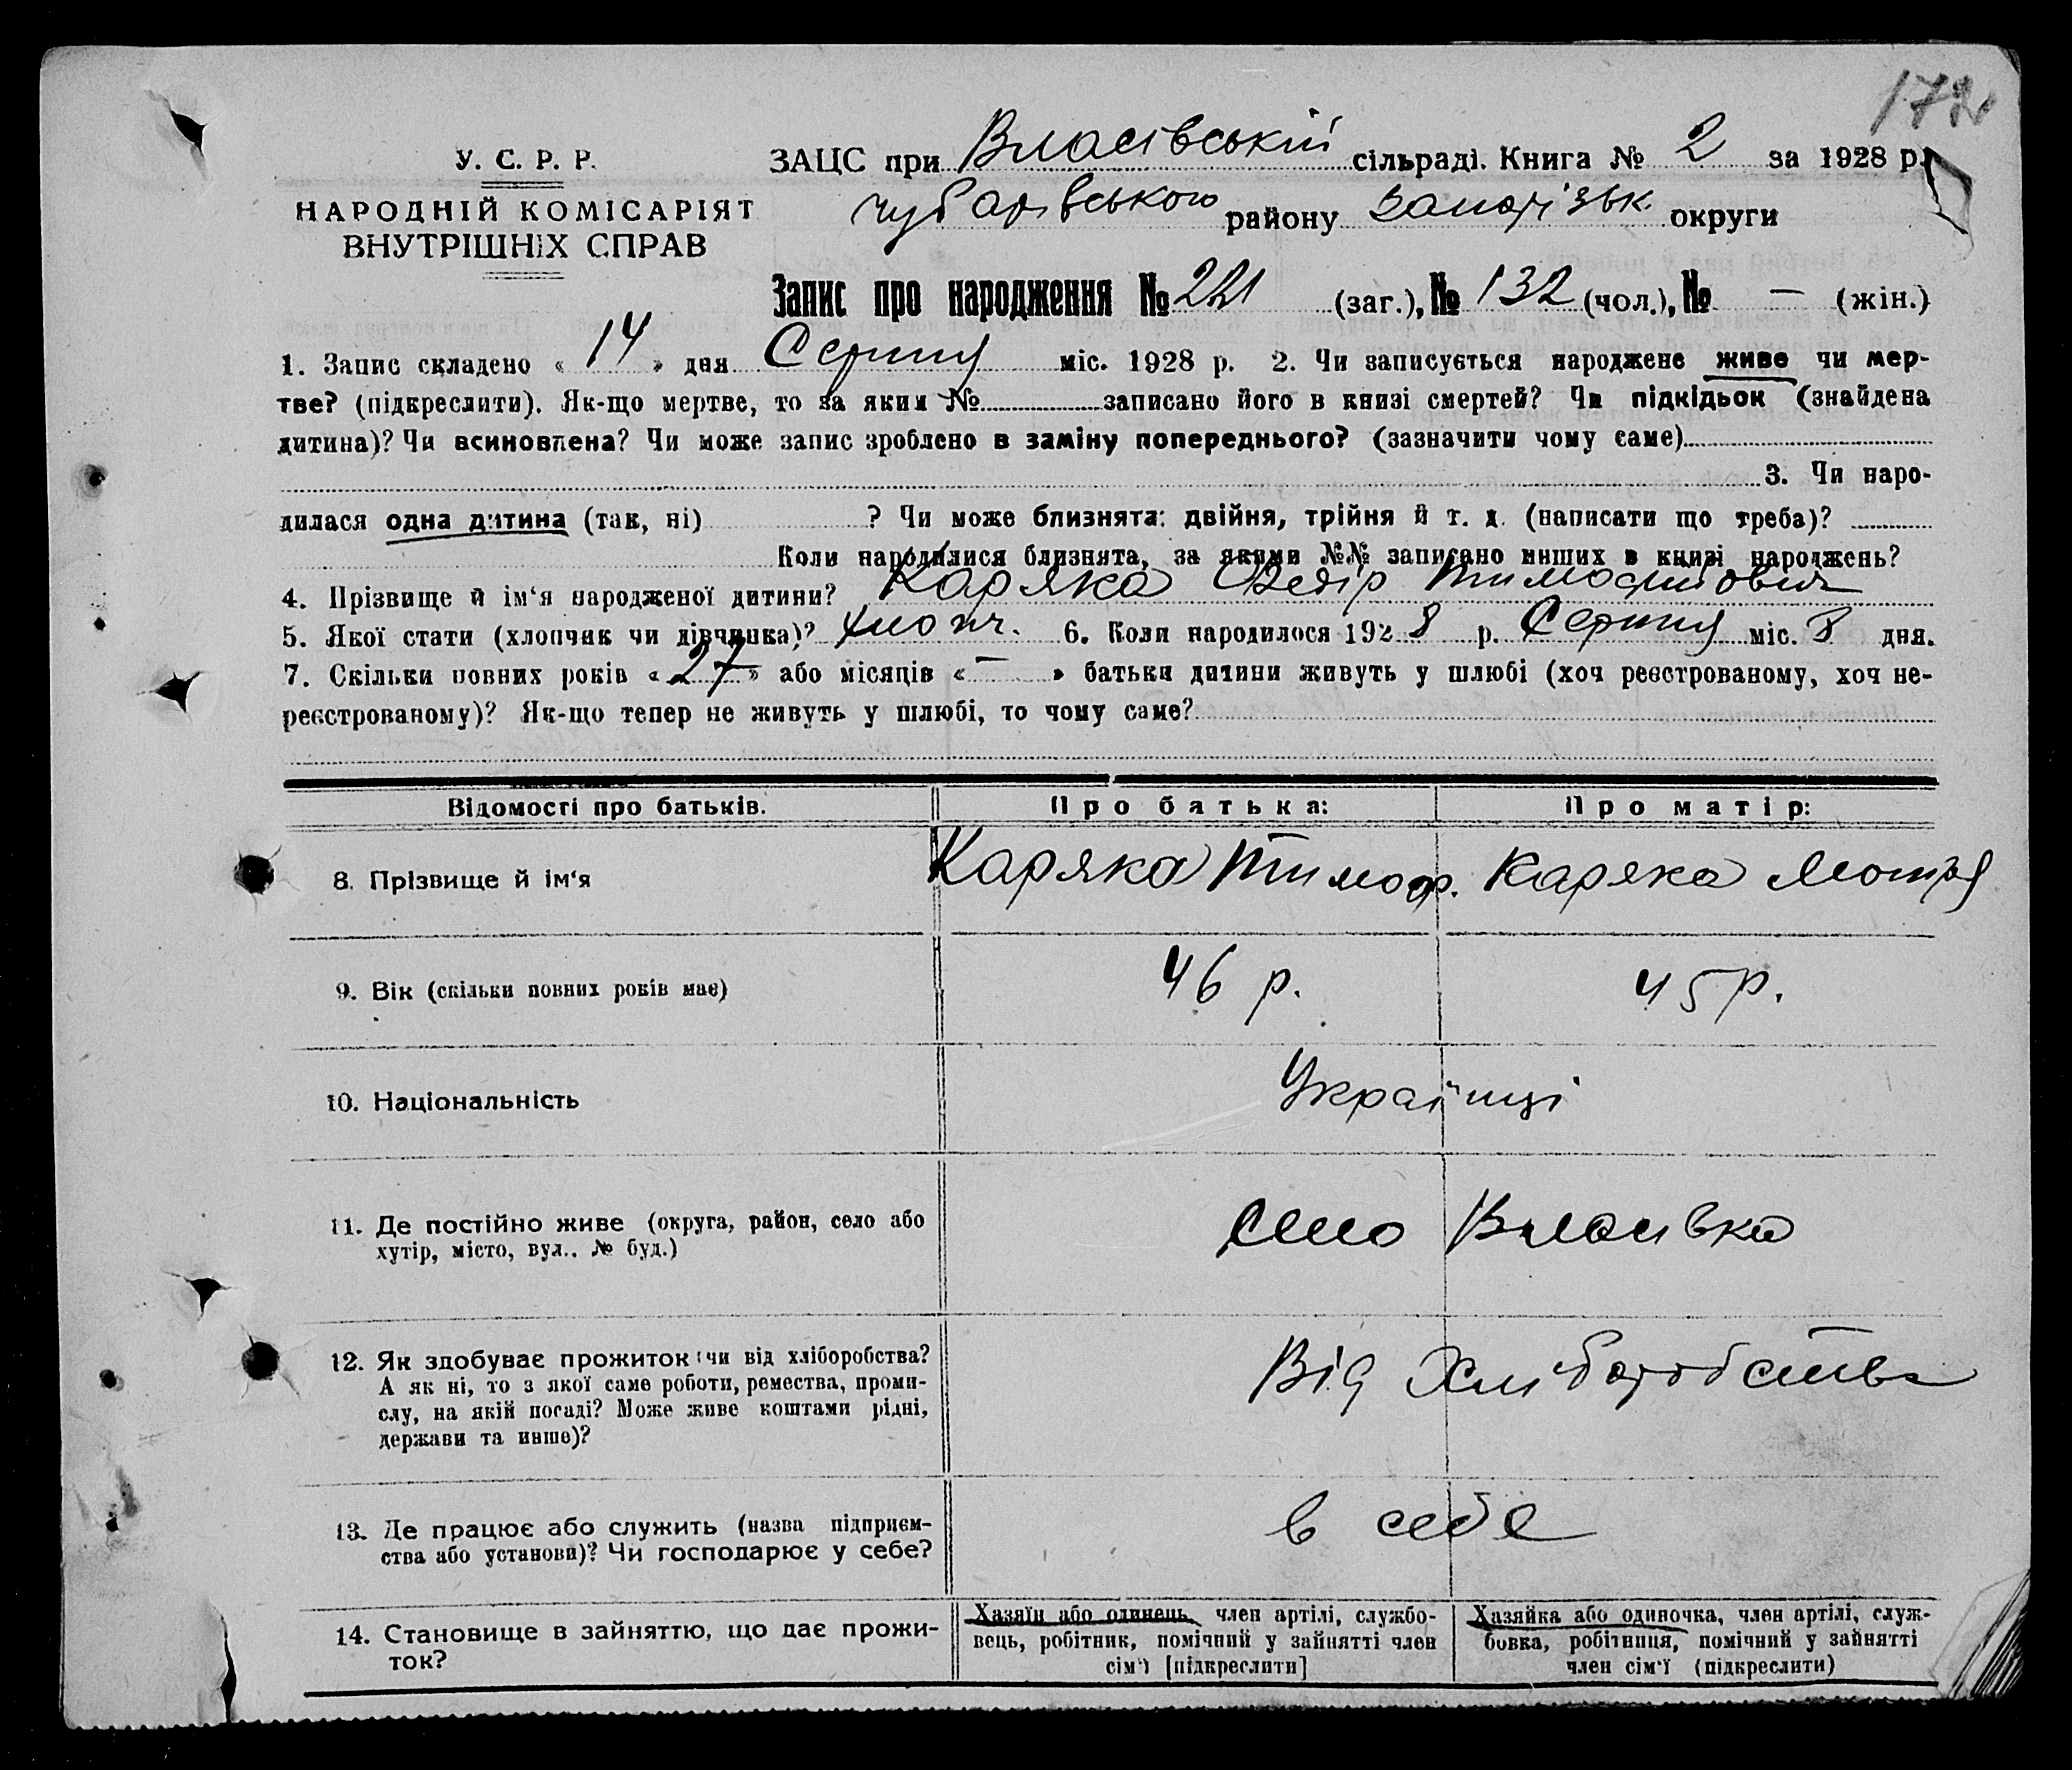 172
У. С. Р. Р.
НАРОДНІЙ КОМІСАРІЯТ
ВНУТРІШНІХ СПРАВ
ЗАЦС при Власівській сільраді. Книга № 2 за 1928 р.
Чубарівського району Запорізьк. округи
Запис про народження № 221 (заг.), № 132 (чол.), № — (жін.)
1. Запис складено « 14 » дня Серпня міс. 1928 р. 2. Чи записується народжене живе чи мер-
тве? (підкреслити). Як-що мертве, то за яким № записано його в книзі смертей? Чи підкідьок (знайдена
дитина)? Чи всиновлена? Чи може запис зроблено в заміну попереднього? (зазначити чому саме)
3. Чи наро-
дилася одна дитина (так, ні) ? Чи може близнята: двійня, трійня й т. д. (написати що треба)?
Коли народилися близнята, за якими №№ записано инших в книзі народжень?
4. Прізвище й ім'я народженої дитини? Каряка Федір Тимофійович
5. Якої стати (хлопчик чи дівчинка)? хлопч. 6. Коли народилося 1928 р. Серпня міс. 8 дня.
7. Скільки повних років « 27 » або місяців « — » батьки дитини живуть у шлюбі (хоч реєстрованому, хоч не-
реєстрованому)? Як-що тепер не живуть у шлюбі, то чому саме?
Відомості про батьків. Про батька: Про матір:
8. Прізвище й ім'я Каряка Тимоф. Каряка Мотря
9. Вік (скільки повних років має) 46 р. 45 р.
10. Національність Українці
11. Де постійно живе (округа, район, село або
хутір, місто, вул., № буд.) село Власивка
12. Як здобуває прожиток: чи від хліборобства?
А як ні, то з якої саме роботи, ремества, проми-
слу, на якій посаді? Може живе коштами рідні,
держави та инше)? Від Хліборобства
13. Де працює або служить (назва підприєм-
ства або установи)? Чи господарює у себе? в себе
14. Становище в зайняттю, що дає прожи-
ток?
Хазяїн або одинець, член артілі, службо-
вець, робітник, помічний у зайнятті член
сім'ї [підкреслити]
Хазяйка або одиночка, член артілі, служ-
бовка, робітниця, помічний у зайнятті
член сім'ї (підкреслити)